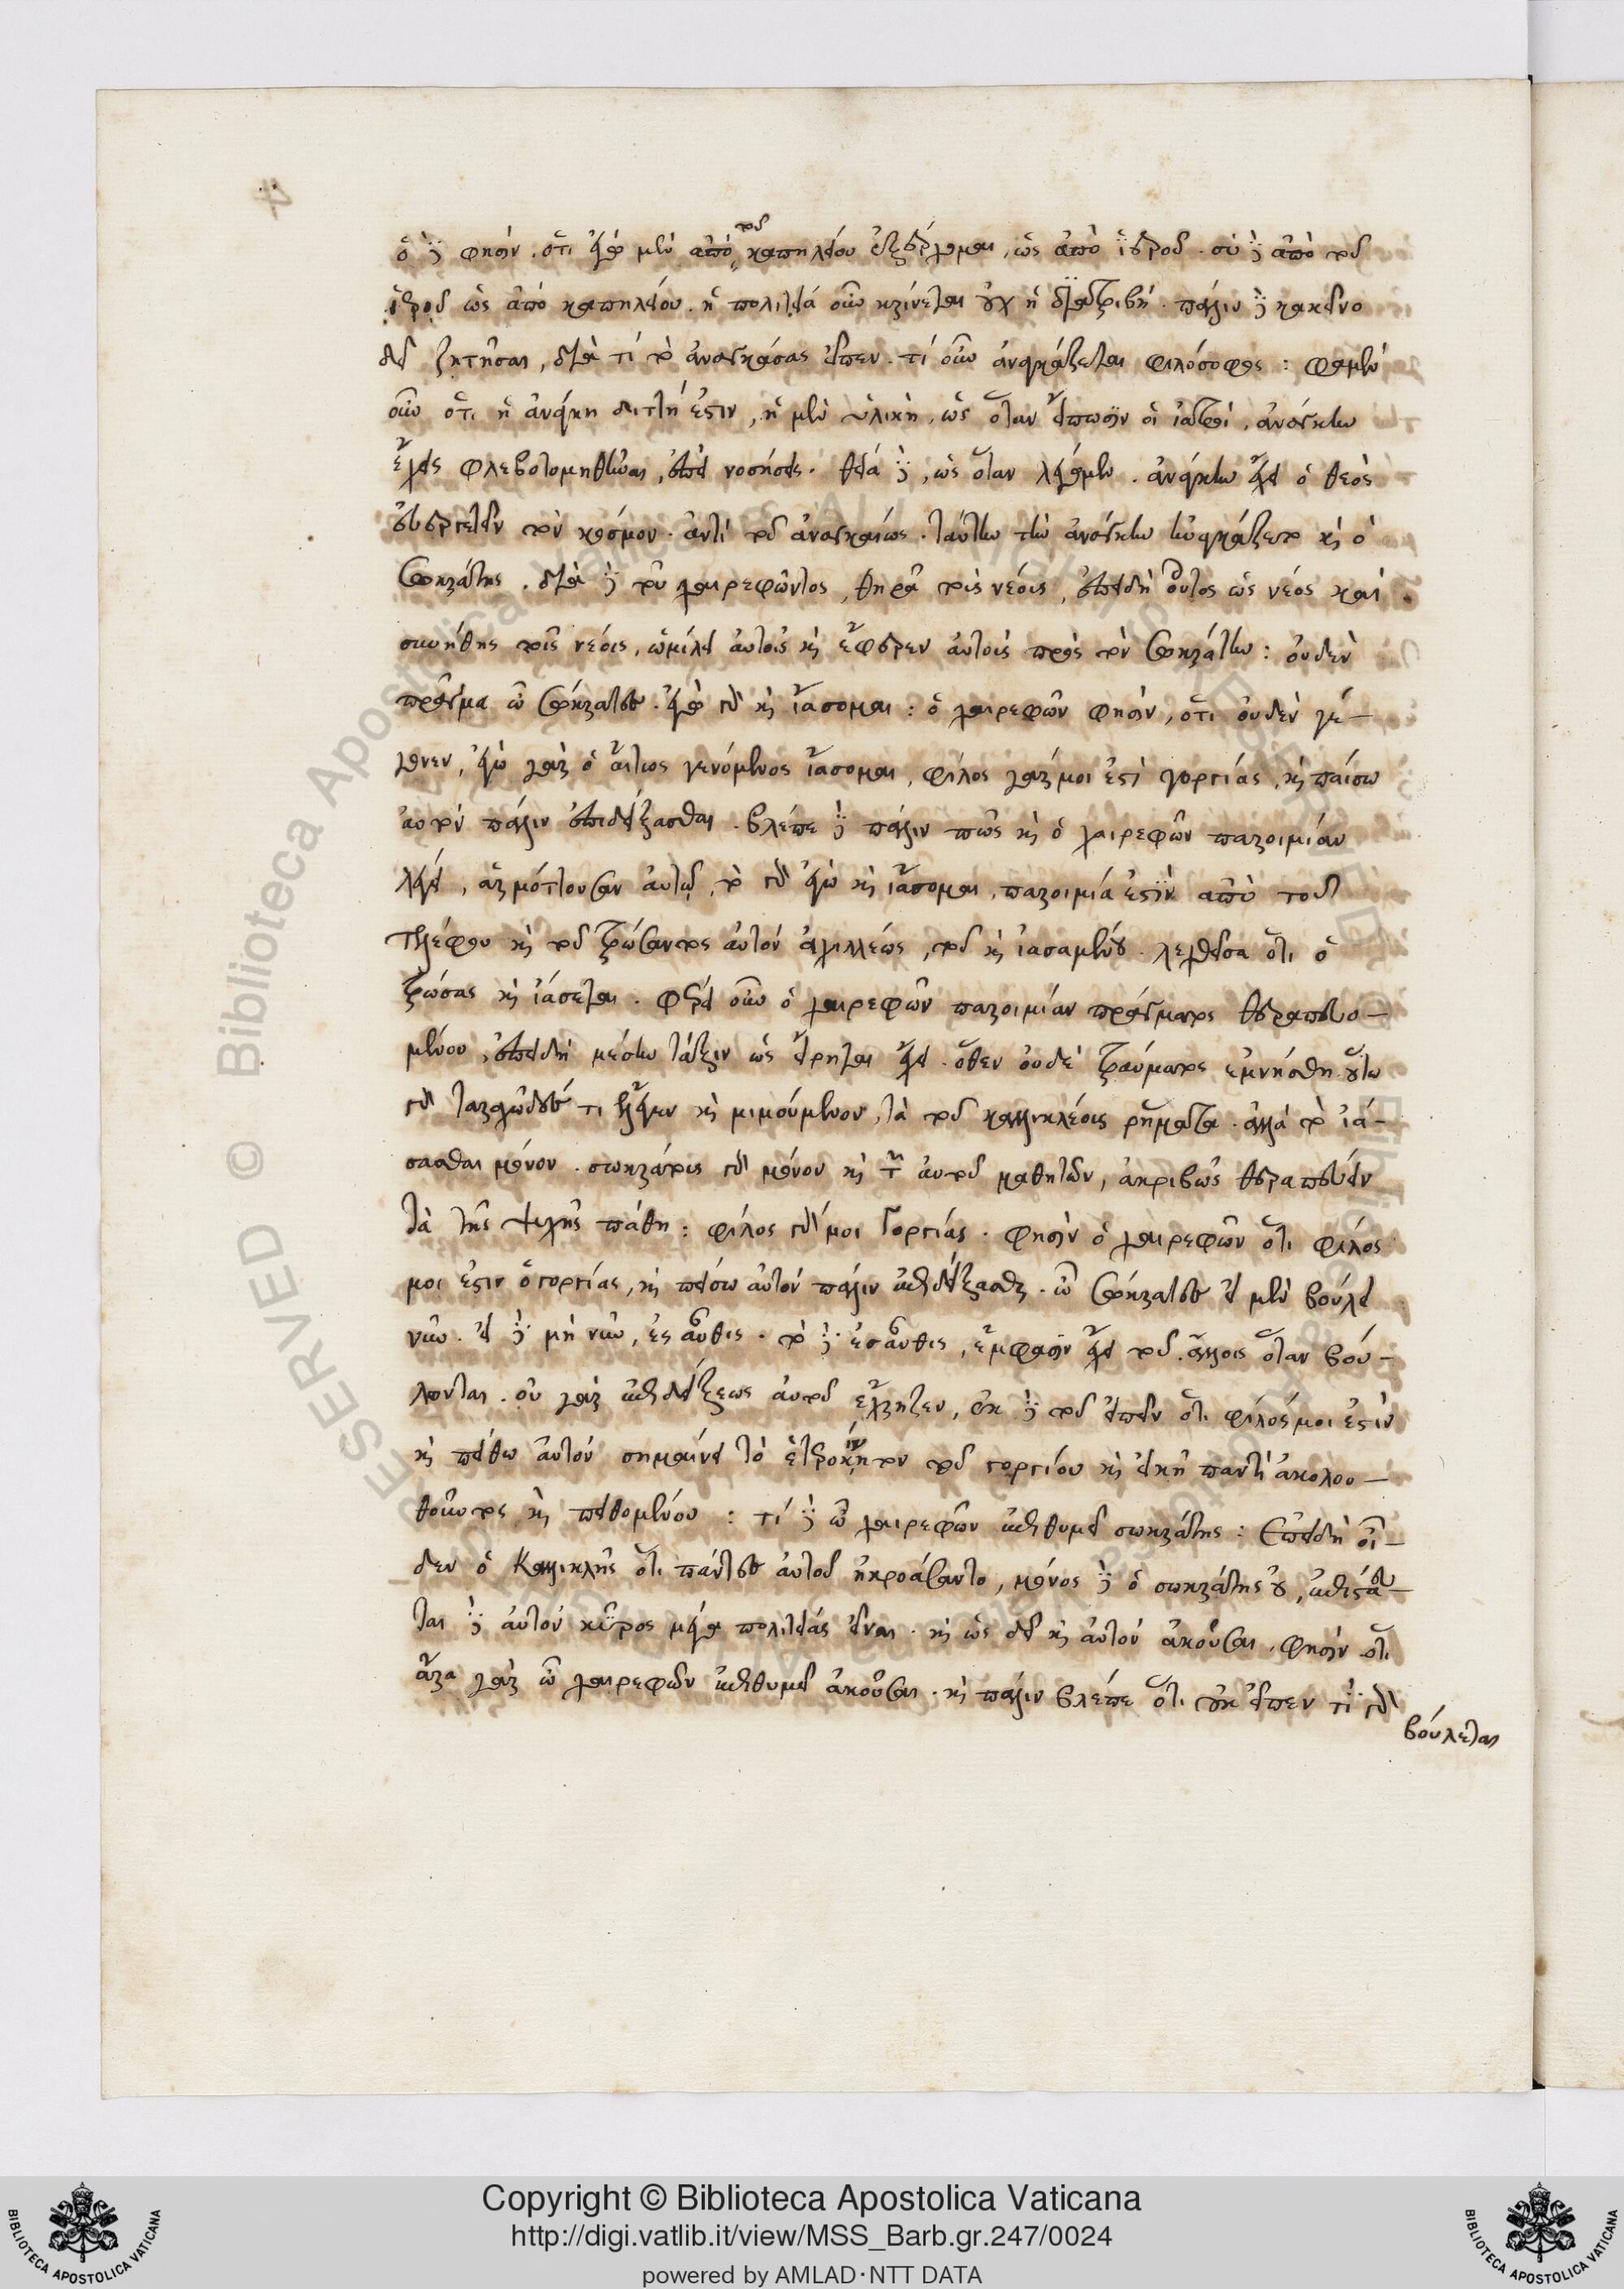 ὁ δὲ φησὶν. ὅτι ἐγὼ μὲν ἀπὸ τοῦ καπηλείου ἐξέρχομαι, ὡς ἀπὸ ἱεροῦ. σὺ δὲ ἀπὸ τοῦ
ἱεροῦ ὡς ἀπὸ καπηλείου. ἡ πολιτεία οὖν κρίνεται οὐχ ἡ διατριβή. πάλιν δὲ κακεῖνο
δεῖ ζητῆσαι, διὰ τί τὸ ἀναγκάσας εἶπεν. τί οὖν ἀναγκάζεται φιλόσοφος: φαμὲν
οὖν ὅτι ἡ ἀνάγκη διττή ἐστιν, ἡ μὲν ὑλικὴ, ὡς ὅταν εἴπωσιν οἱ ἰατροὶ, ἀνάγκην
ἔχεις φλεβοτομηθῆναι, ἐπεὶ νοσήσεις. θεία δὲ, ὡς ὅταν λέγομεν. ἀνάγκην ἔχει ὁ θεὸς
εὐεργετεῖν τὸν κόσμον. ἀντὶ τοῦ ἀναγκαίως. ταύτην τὴν ἀνάγκην ἠναγκάζετο καὶ ὁ
Σωκράτης. διὰ δὲ τοῦ χαιρεφῶντος, θηρᾷ τοὺς νέους, ἐπειδὴ οὗτος ὡς νέος καὶ
συνήθης τοῖς νέοις, ὡμίλει αὐτοῖς καὶ ἔφερεν αὐτοὺς πρὸς τὸν Σωκράτην: οὐδὲν
πρᾶγμα ὦ Σώκρατες. ἐγὼ γὰρ καὶ ἰάσομαι: ὁ χαιρεφῶν φησὶν, ὅτι οὐδὲν γέ-
γονεν, ἐγὼ γὰρ ὁ αἴτιος γενόμενος ἰάσομαι, φίλος γάρ μοι ἐστὶ γοργίας, καὶ παίσω
αὐτὸν πάλιν ἐπιδείξασθαι. βλέπε δὲ πάλιν πῶς καὶ ὁ χαιρεφῶν παροιμίαν
λέγει, ἁρμόττουσαν αὐτῷ, τὸ γὰρ ἐγὼ καὶ ἰάσομαι, παροιμία ἐστὶν ἀπὸ τοῦ
τηλέφου καὶ τοῦ τρώσαντος αὐτὸν ἀχιλλέως, τοῦ καὶ ἰασαμένου. λεχθεῖσα ὅτι ὁ
τρώσας καὶ ἰάσεται. φέρει οὖν ὁ χαιρεφῶν παροιμίαν πράγματος θεραπευο-
μένου, ἐπειδὴ μέσην τάξιν ὡς εἴρηται ἔχει. ὅθεν οὐδὲ τραύματος ἐμνήσθη οὕτω
γὰρ ταραχῶδές τι ἦν καὶ μιμούμενον, τὰ τοῦ καλλικλέους ῥήματα. ἀλλὰ τὸ ἰά-
σασθαι μόνον. σωκράτους γὰρ μόνου καὶ τῶν αὐτοῦ μαθητῶν, ἀκριβῶς θεραπεύειν
τὰ τῆς ψυχῆς πάθη: φίλος γάρ μοι Γοργίας. φησὶν ὁ χαιρεφῶν ὅτι φίλος
μοι ἐστιν ὁ γοργίας, καὶ πείσω αὐτὸν πάλιν ἐπιδείξασθαι. ὦ Σώκρατες εἰ μὲν βούλει
νῦν. εἰ δὲ μὴ νῦν, ἐς αὖθις. τὸ δὲ ἐσαῦθις, ἔμφασιν ἔχει τοῦ ἄλλοις ὅταν βού-
λονται. οὐ γὰρ ἐπιδείξεως αὐτοῦ ἔχρηζεν, ἐκ δὲ τοῦ εἰπεῖν ὅτι φίλος μοι ἐστὶν
καὶ πείθω αὐτὸν σημαίνει τὸ ἑτεροκίνητον τοῦ γοργίου καὶ εἰκῆ παντὶ ἀκολου-
θοῦντος καὶ πειθομένου: τί δὲ ὦ χαιρεφῶν ἐπιθυμεῖ σωκράτης: Ἐπειδὴ οἶ-
δεν ὁ Καλλικλῆς ὅτι πάντες αὐτοῦ ἠκροάσαντο, μόνος δὲ ὁ σωκράτης οὐ,
ται δὲ αὐτὸν κῦρος μέγα πολιτείας εἶναι. καὶ ὡς δεῖ καὶ αὐτὸν ἀκοῦσαι. φησὶν ὅτι
ἆρα γὰρ ὦ χαιρεφῶν ἐπιθυμεῖ ἀκοῦσαι. καὶ πάλιν βλέπε ὅτι οὐκ εἶπεν τί γὰρ
βούλεται